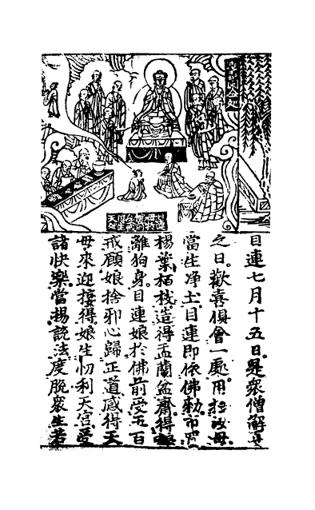 目連七月十五日是衆僧解夏
之日歡喜俱會一處用扵汝母
當生净土目連即依佛勅市買
楊葉栢枝造得盂蘭盆齋得娘
離狗身目連娘於佛前受五百
戒願娘捨邪心歸正道感得天
母來迎接得娘生忉利天宮受
諸快樂當揚說法度脫衆生若